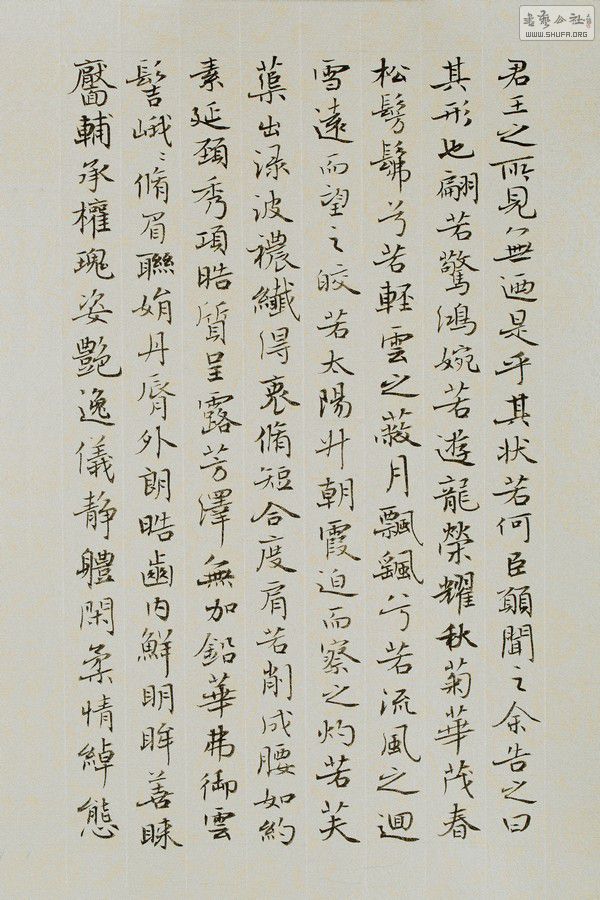 書藝公社
WWW.SHUFA.ORG
君王之所見無迺是乎其状若何臣願聞之余告之曰
其形也翩若驚鴻婉若遊龍榮耀秋菊華茂春
松髣髴兮若輕雲之蔽月飄颻兮若流風之迴
雪遠而望之皎若太陽升朝霞迫而察之灼若芙
蕖出渌波襛纖得衷脩短合度肩若削成腰如約
素延頸秀項皓質呈露芳澤無加鉛華弗御雲
髻峨〻脩眉聯娟丹脣外朗皓齒内鮮明眸善睞
靨輔承權瑰姿艷逸儀静體閑柔情綽態